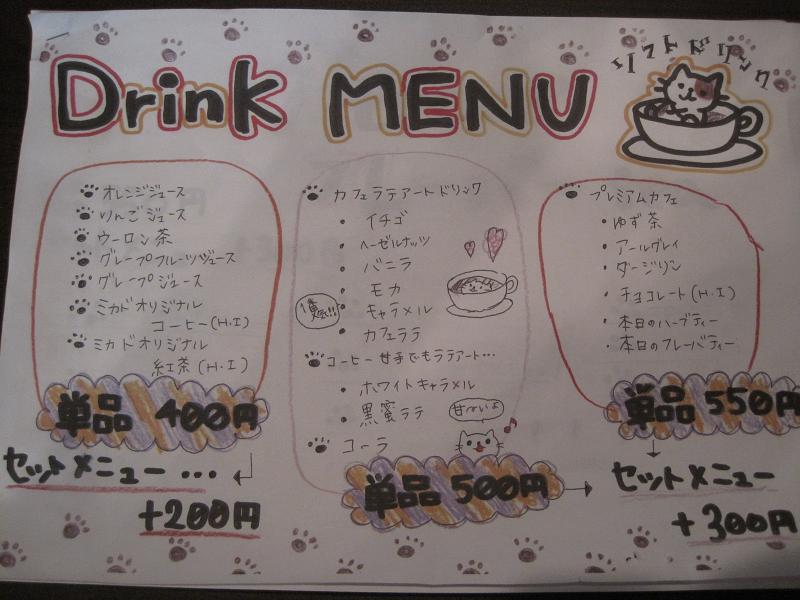 Drink MENU
ソフトドリンク
オレンジジュース
りんごジュース
ウーロン茶
グレープフルーツジュース
グレープジュース
ミカドオリジナル
コーヒー(H・I)
ミカドオリジナル
紅茶(H・I)
単品 400円
セットメニュー…
+200円
カフェラテアートドリンク
・イチゴ
・ヘーゼルナッツ
・バニラ
・モカ
・キャラメル
1番人気!!
・カフェラテ
コーヒー苦手でもラテアート…
・ホワイトキャラメル
・黒蜜ラテ
甘〜いよ
コーラ
単品 500円
プレミアムカフェ
・ゆず茶
・アールグレイ
・ダージリン
・チョコレート(H・I)
・本日のハーブティー
・本日のフレーバティー
単品 550円
セットメニュー
+300円